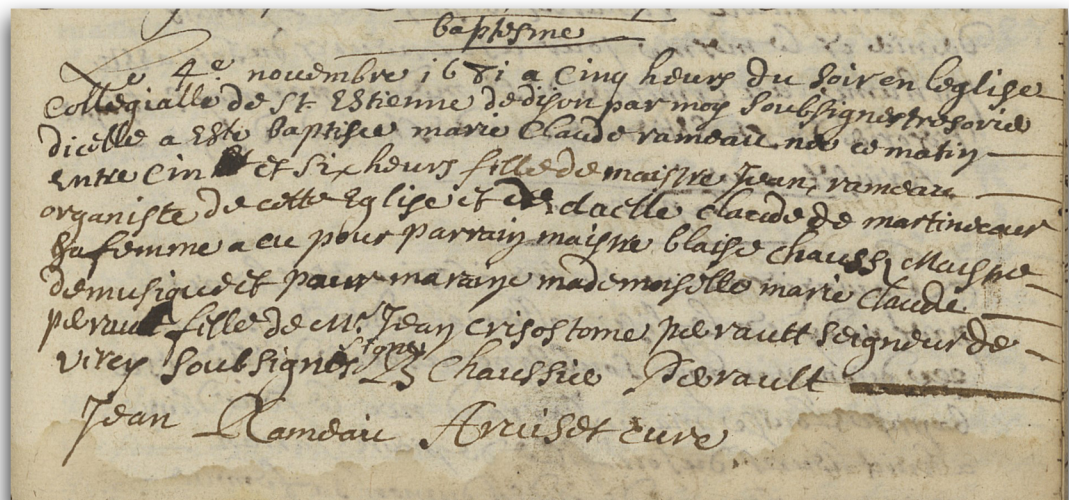 baptesme
Le 4e novembre 1681 a Cinq heurs du Soir en leglise
Collegialle de St Estienne dedijon par moy soubsigne tresorie
dicelle a Este baptisee marie Claude rameau nee ce matin
Entre Cin et Six heurs fille de maistre Jean rameau
organiste de cette Eglise et de dlaelle claude de martinecour
Sa femme a eu pour parrain maistre blaise chaussy Maistre
demusique et pour maraine mademoiselle marie Claude
perault fille de Mr. Jean Crisostome perault Seigneur de
virey Soubsignes signe Chaussiee Perault
Jean Rameau Aruiset cure